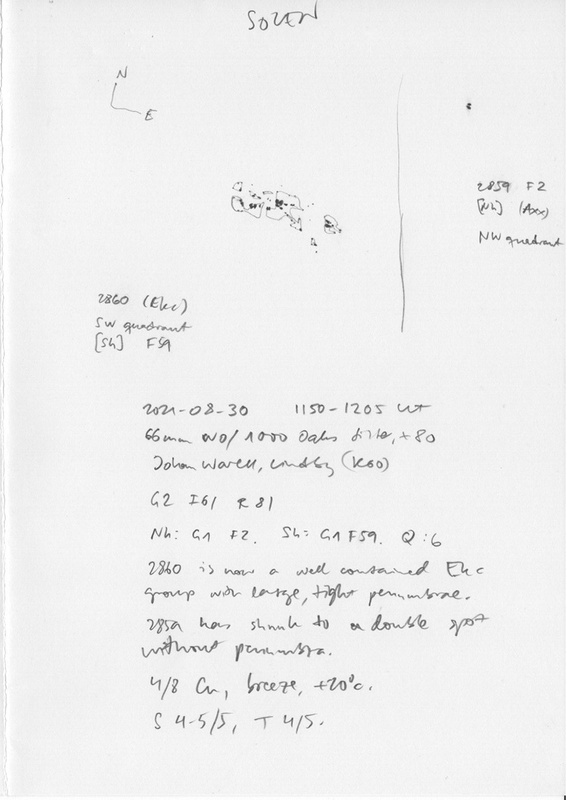 SOLEN
N
E
2859 F2
[Nh] (Axx)
NW quadrant
2860 (Ekc)
SW quadrant
[Sh] F59
2021-08-30 1150-1205 UT
66mm WO/1000 Oaks filter, +80
Johan Warell, Lindby (K60)
G2 I61 R81
Nh: G1 F2. Sh: G1 F59. Q:6
2860 is now a well contained Ekc
group with large, tight penumbrae.
2859 has shrunk to a double spot
without penumbra.
4/8 Cu, breeze, +20°C.
S 4-5/5, T 4/5.